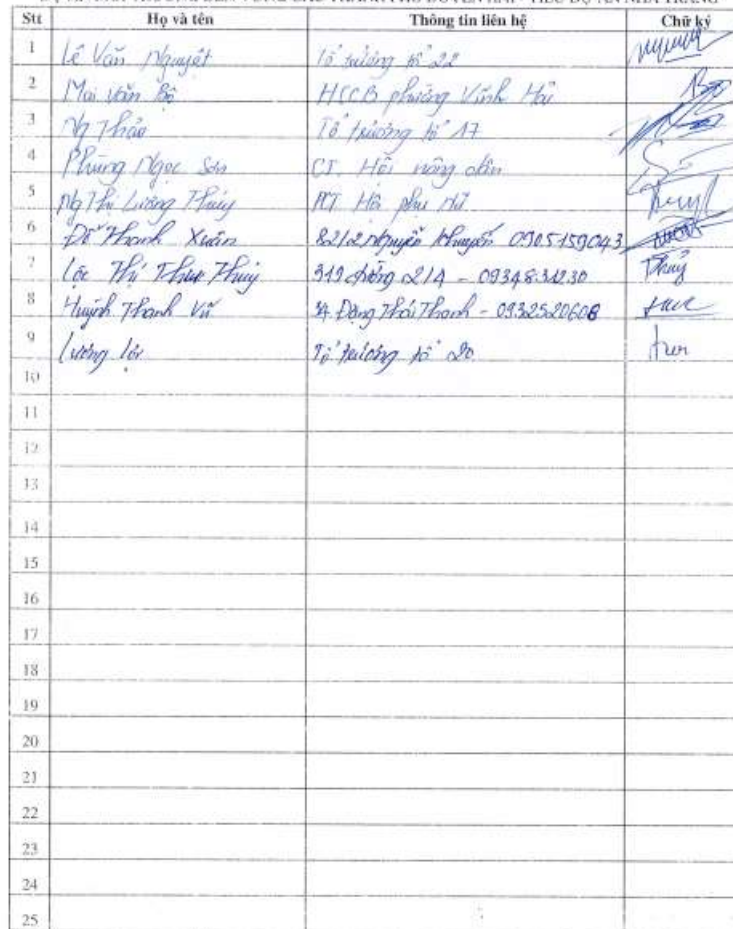 DỰ ÁN MÔI TRƯỜNG BỀN VỮNG CÁC THÀNH PHỐ DUYÊN HẢI - TIỂU DỰ ÁN NHA TRANG
Stt Họ và tên Thông tin liên hệ Chữ ký
1 Lê Văn Nguyệt Tổ trưởng tổ 22
2 Mai Văn Bộ HCCB phường Vĩnh Hải
3 Ng Thảo Tổ trưởng tổ 17
4 Phùng Ngọc Sơn CT. Hội nông dân
5 Ng Thị Lương Thúy PCT Hội phụ nữ
6 Đỗ Thanh Xuân 82/2 Nguyễn Khuyến 0905159043
7 Lộc Thị Thu Thủy 319 đường 2/4 - 0934834230 Thủy
8 Huỳnh Thanh Vũ 34 Đặng Thái Thanh - 0932520608
9 Lương Lợi Tổ trưởng tổ 20
10
11
12
13
14
15
16
17
18
19
20
21
22
23
24
25